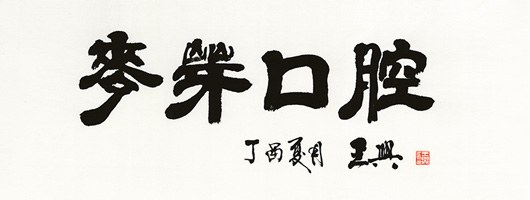 麥芽口腔
丁酉夏月 王興